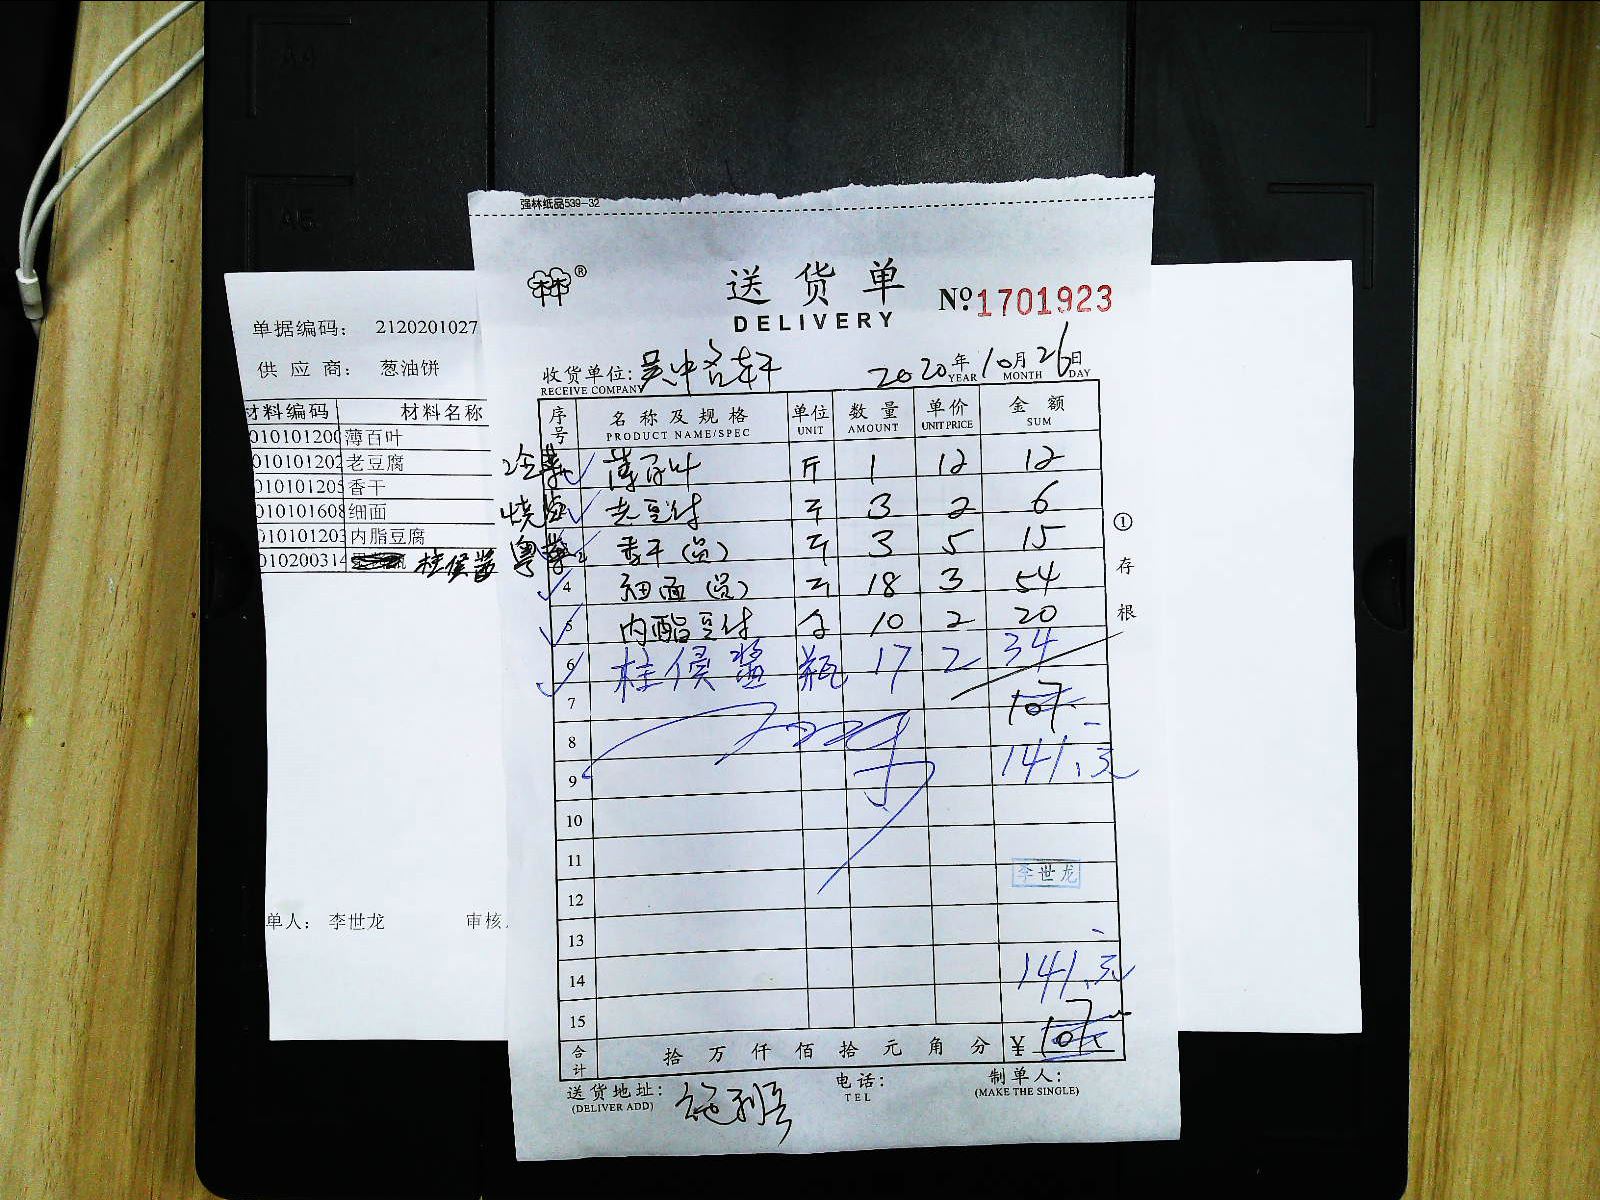 强林纸品539-32
林®
送货单
DELIVERY
№1701923
收货单位: 吴中名轩 2020年10月26日
RECEIVE COMPANY YEAR MONTH DAY
序号 名称及规格 单位 数量 单价 金额
PRODUCT NAME/SPEC UNIT AMOUNT UNIT PRICE SUM
冷菜 薄百叶 斤 1 12 12
烧 老豆付 斤 3 2 6
粤菜 香干 斤 3 5 15
4 细面 斤 18 3 54
5 内酯豆付 10 2 20
6 柱侯酱 瓶 17 2 34
7 107
8
9 141.元
10
11 李世龙
12
13
14 141.元
15
合计 拾万仟佰拾元角分 ¥107
送货地址: 电话: 制单人:
(DELIVER ADD) TEL (MAKE THE SINGLE)
①存根
单据编码: 2120201027
供应商: 葱油饼
材料编码 材料名称
010101200 薄百叶
010101202 老豆腐
010101205 香干
010101608 细面
010101203 内脂豆腐
010200314 柱侯酱
单人: 李世龙 审核